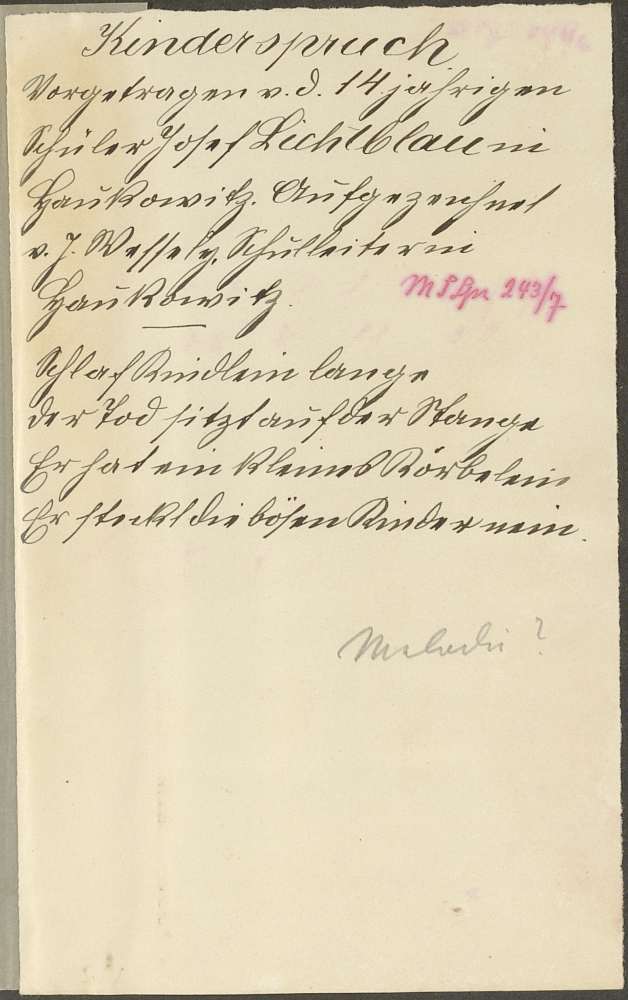 Kinderspruch
Vorgetragen v. d. 14 jährigen
Schüler Josef Lichtblau in
Haukowitz. Aufgezeichnet
v. J. Wessely, Schulleiter in
Haukowitz.
243/7
Schlaf Kindlein lange
der Tod sitzt auf der Stange
Er hat ein kleines Körbelein
Er steckt die bösen Kinder nein.
Melodie?